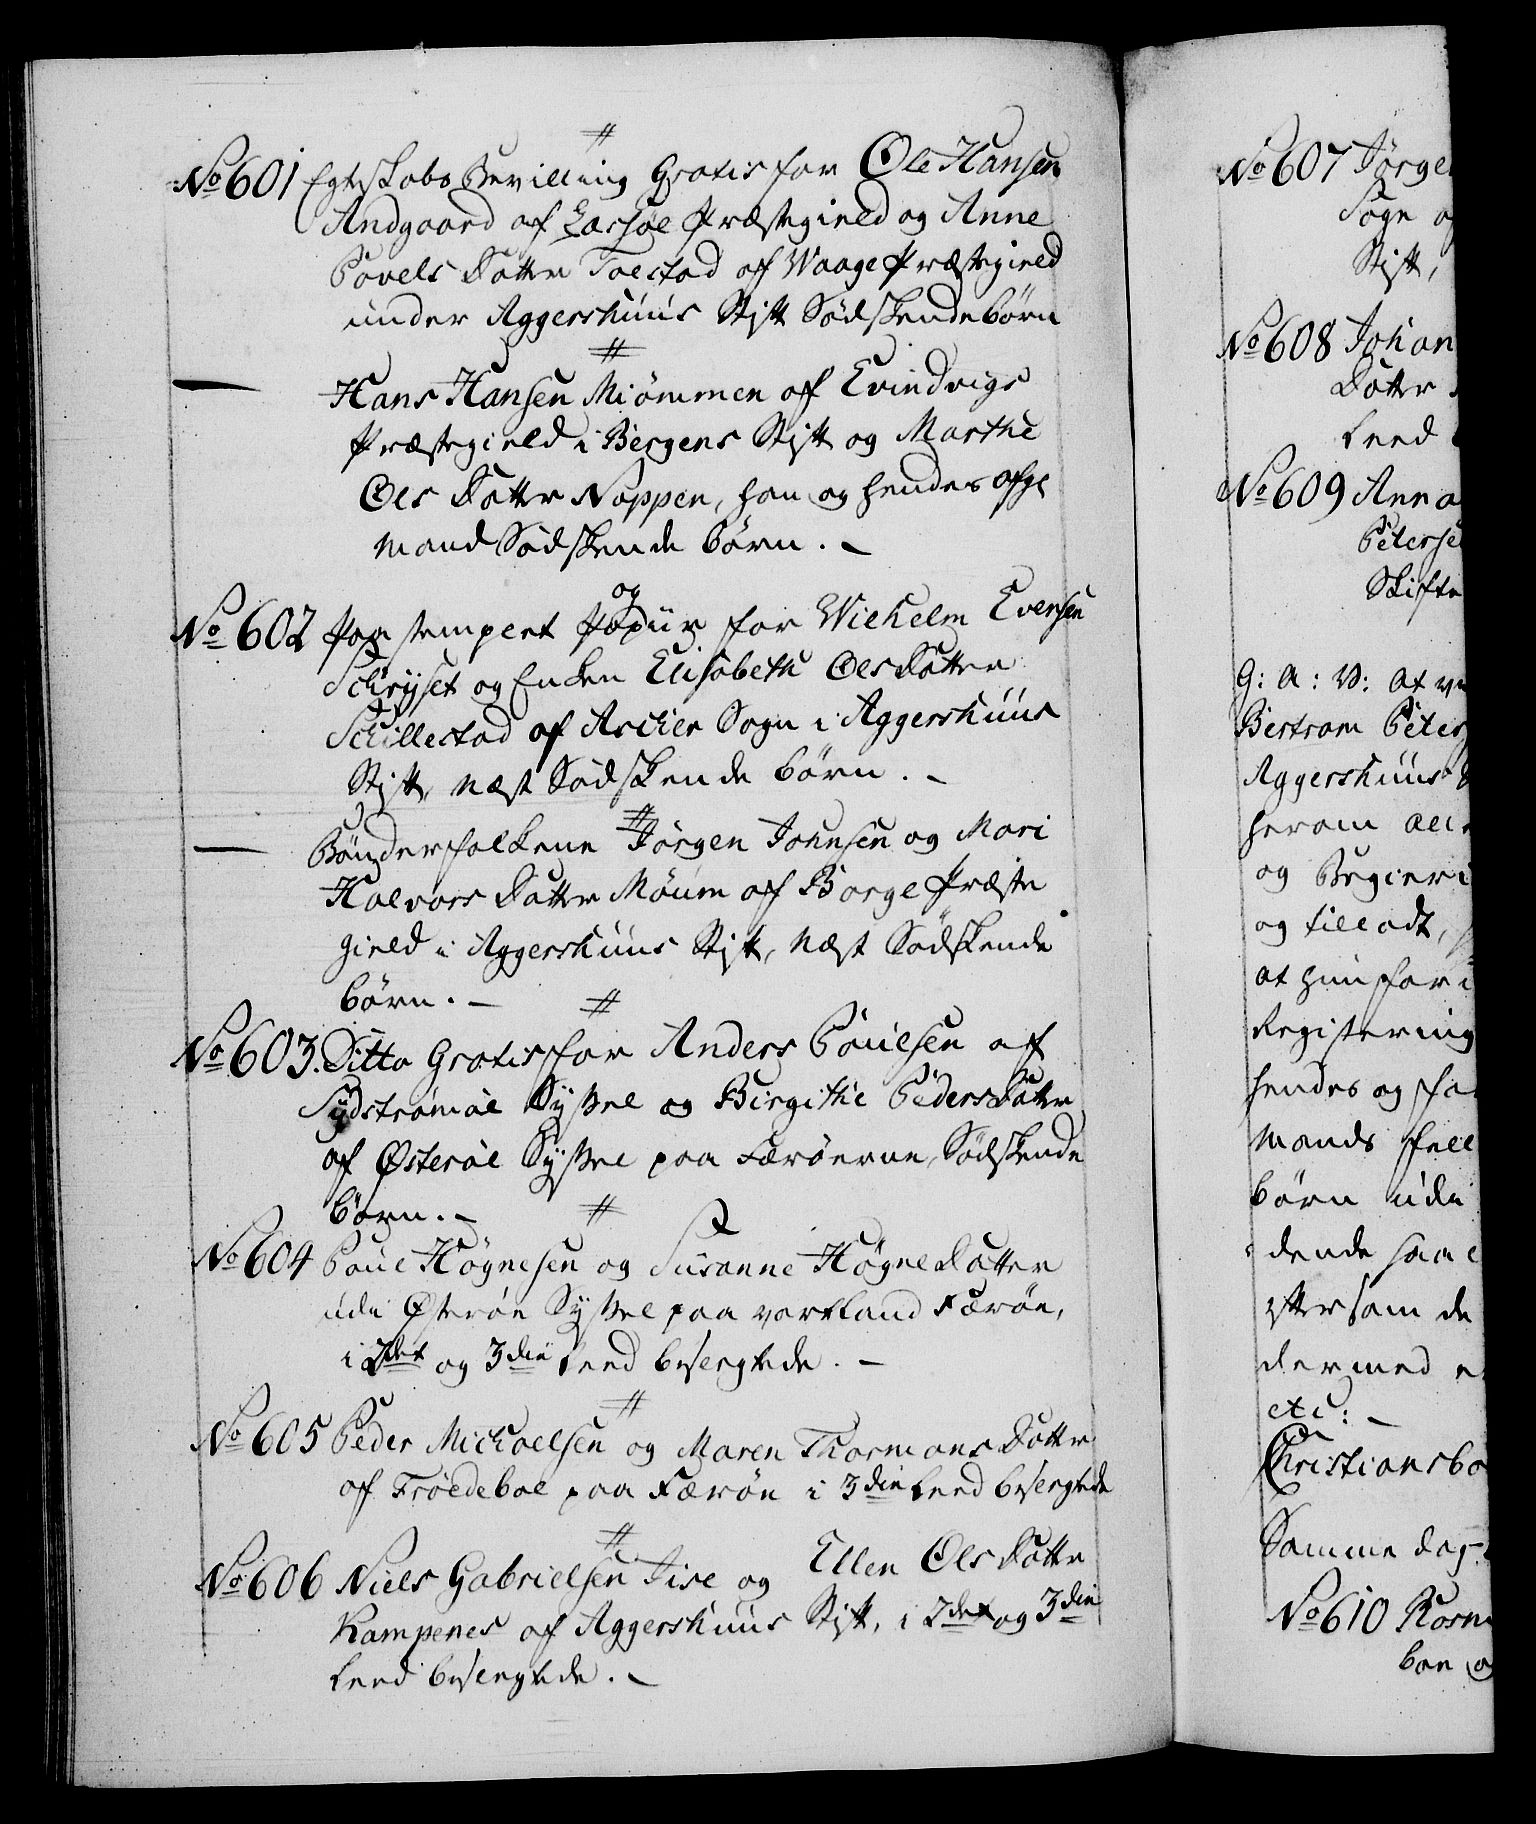 #
No 601 Egteskabs Bevilling Gratis for Ole Hansen
Andgaard af Lassøe Præstegield og Anne
Povels Datter Tolstad af Waage Præstegield
under Aggershuus Stift Södskendebörn
#
— Hans Hansen Miömmen af Evindvigs
Præstegield i Bergens Stift og Marthe
Ols Datter Noppen, han og hendes afg:
Mand Södskende börn. —
No 602 Paa stemplet Papiir for Wilhelm Evensen
og
Schrÿset og Enken Elisabeth Ols Datter
Schillestad af Ascher Sogn i Aggershuus
Stift, Næst Södskende börn. —
#
— Bönderfolkene Jörgen Johnsen og Mari
Halvors Datter Möum af Borge Præste
gield i Aggershuus Stift, Næst Södskende
börn. —
#
No 603. Ditto Gratis for Anders Poulsen af
Sydstrømøe Syssel og Birgithe Peders Datter
af Østerøe Syssel paa Færöerne, Södskende
börn. —
#
No 604 Poul Högnesen og Susanne Högne Datter
udi Østeröe Syssel paa vort Land Færöe,
i 2det og 3die Leed beslegtede. —
#
No 605 Peder Michaelsen og Maren Thormans Datter
af Trödeboe paa Færöe i 3die Leed beslegtede
#
No 606 Niels Gabrielsen Jise og Ellen Ols Datter
Kampenes af Aggershuus Stift, i 2det og 3die
Leed beslegtede. —
No 607 Jørge
Sogn
Stift,
No 608 Johan
Datter
Leed
No 609 Anna
Peterse
Skifte
G: A: V: At
Bertram Peter
Aggershuus
herom all
og Begier
og tilladt,
at hun for
Registering
hendes og
Mands fell
börn udi
dende saa
eftersom de
dermed
etc: —
Christiansbo
Samme dag
No 610